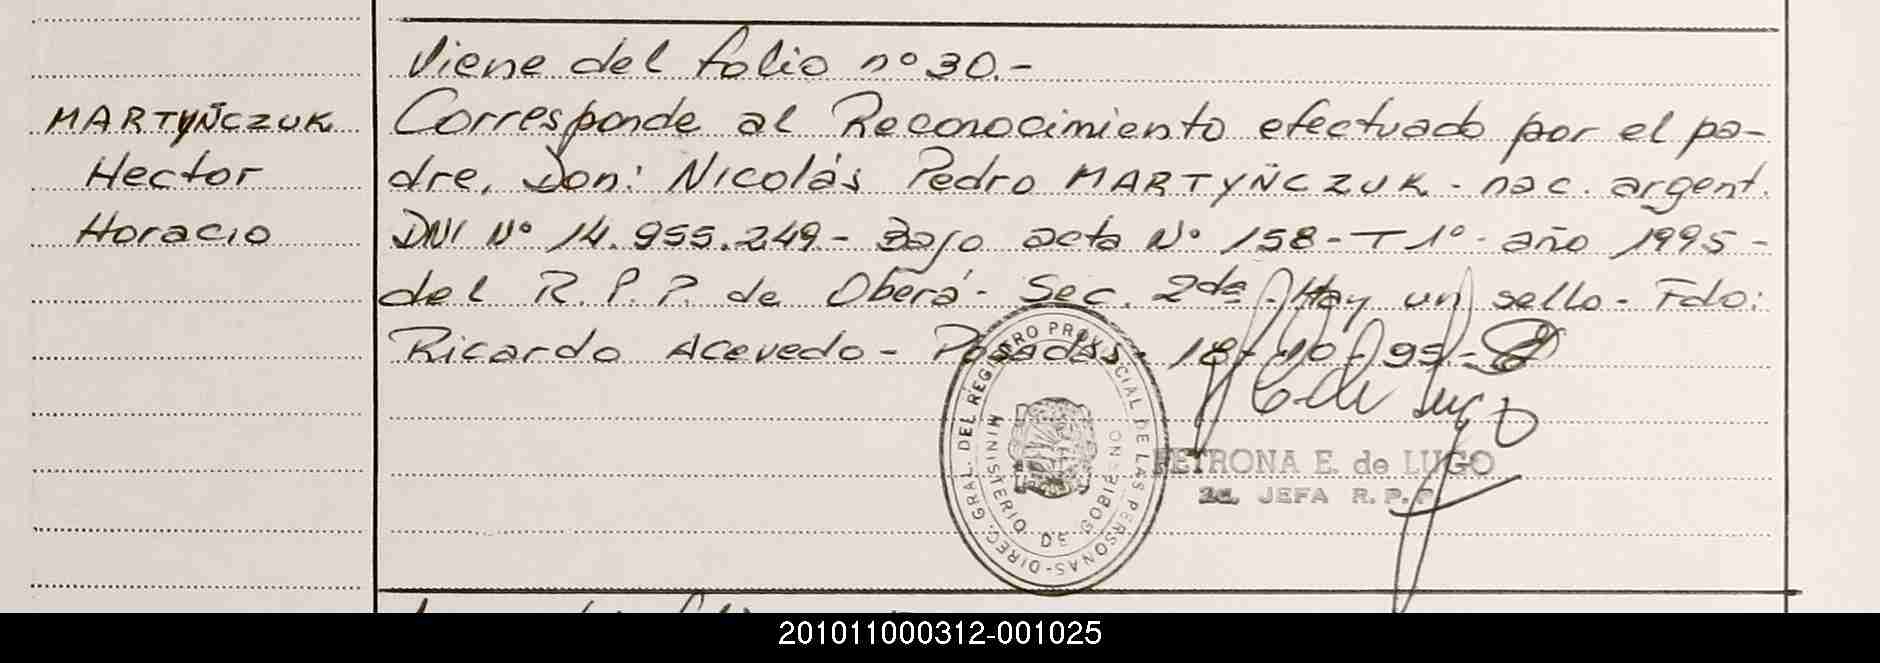 Viene del folio nº 30.-
MARTYÑCZUK
Hector
Horacio
Corresponde al Reconocimiento efectuado por el pa-
dre, Don: Nicolás Pedro MARTYÑCZUK - nac. argent.
DNI Nº 14.955.249 - Bajo acta Nº 158 - T 1º - año 1995 -
del R. P. P. de Oberá - Sec. 2da. Hay un sello - Fdo:
Ricardo Acevedo - Posadas, 18-10-95.-
DIREC. GRAL. DEL REGISTRO PROVINCIAL DE LAS PERSONAS-
MINISTERIO DE GOBIERNO
PETRONA E. de LUGO
2a. JEFA R. P. P.
201011000312-001025